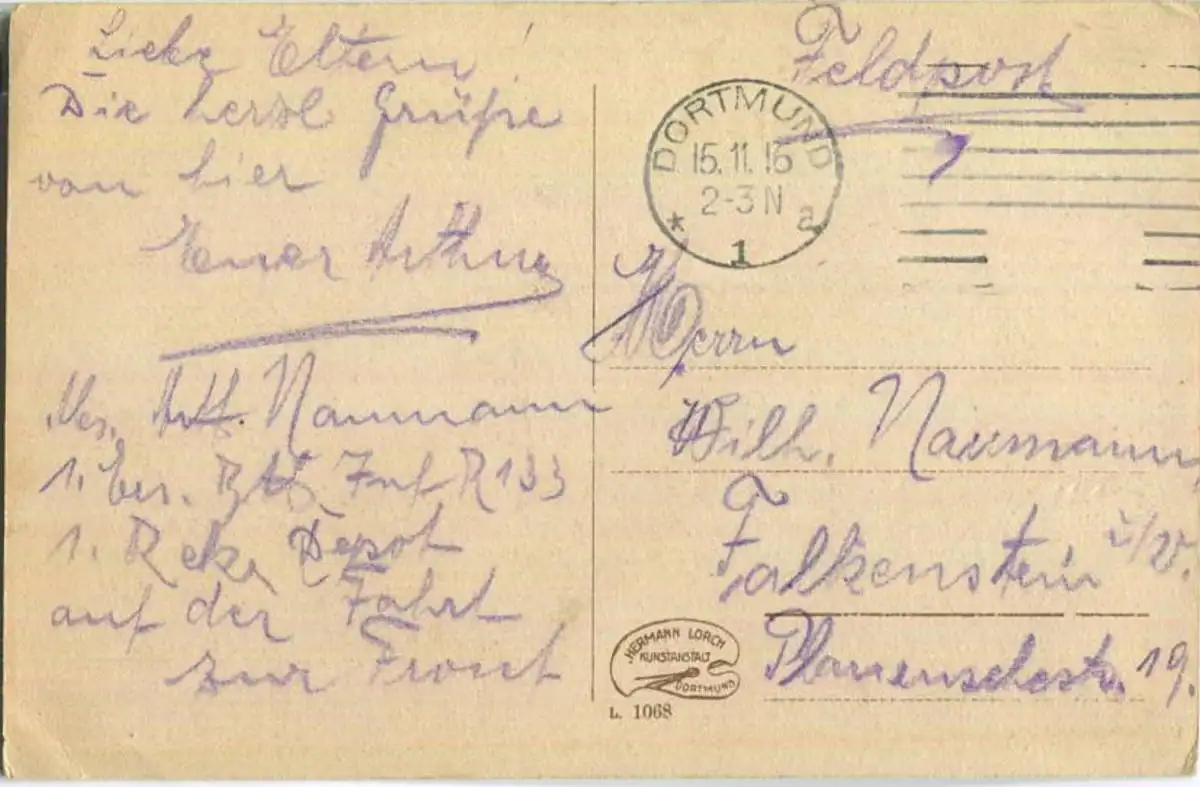 Liebe Eltern!
Die herzl Grüße
von hier
Euer Arthur
Res. Arth. Naumann
1. Ers. Btl Inf R 133
1. Rek. Depot
auf der Fahrt
zur Front
Feldpost
DORTMUND
15.11.16
2-3 N
* 1 a
Herrn
Wilh. Naumann
Falkenstein i/V.
Plauenschestr. 19.
HERMANN LORCH
KUNSTANSTALT
DORTMUND
L. 1068